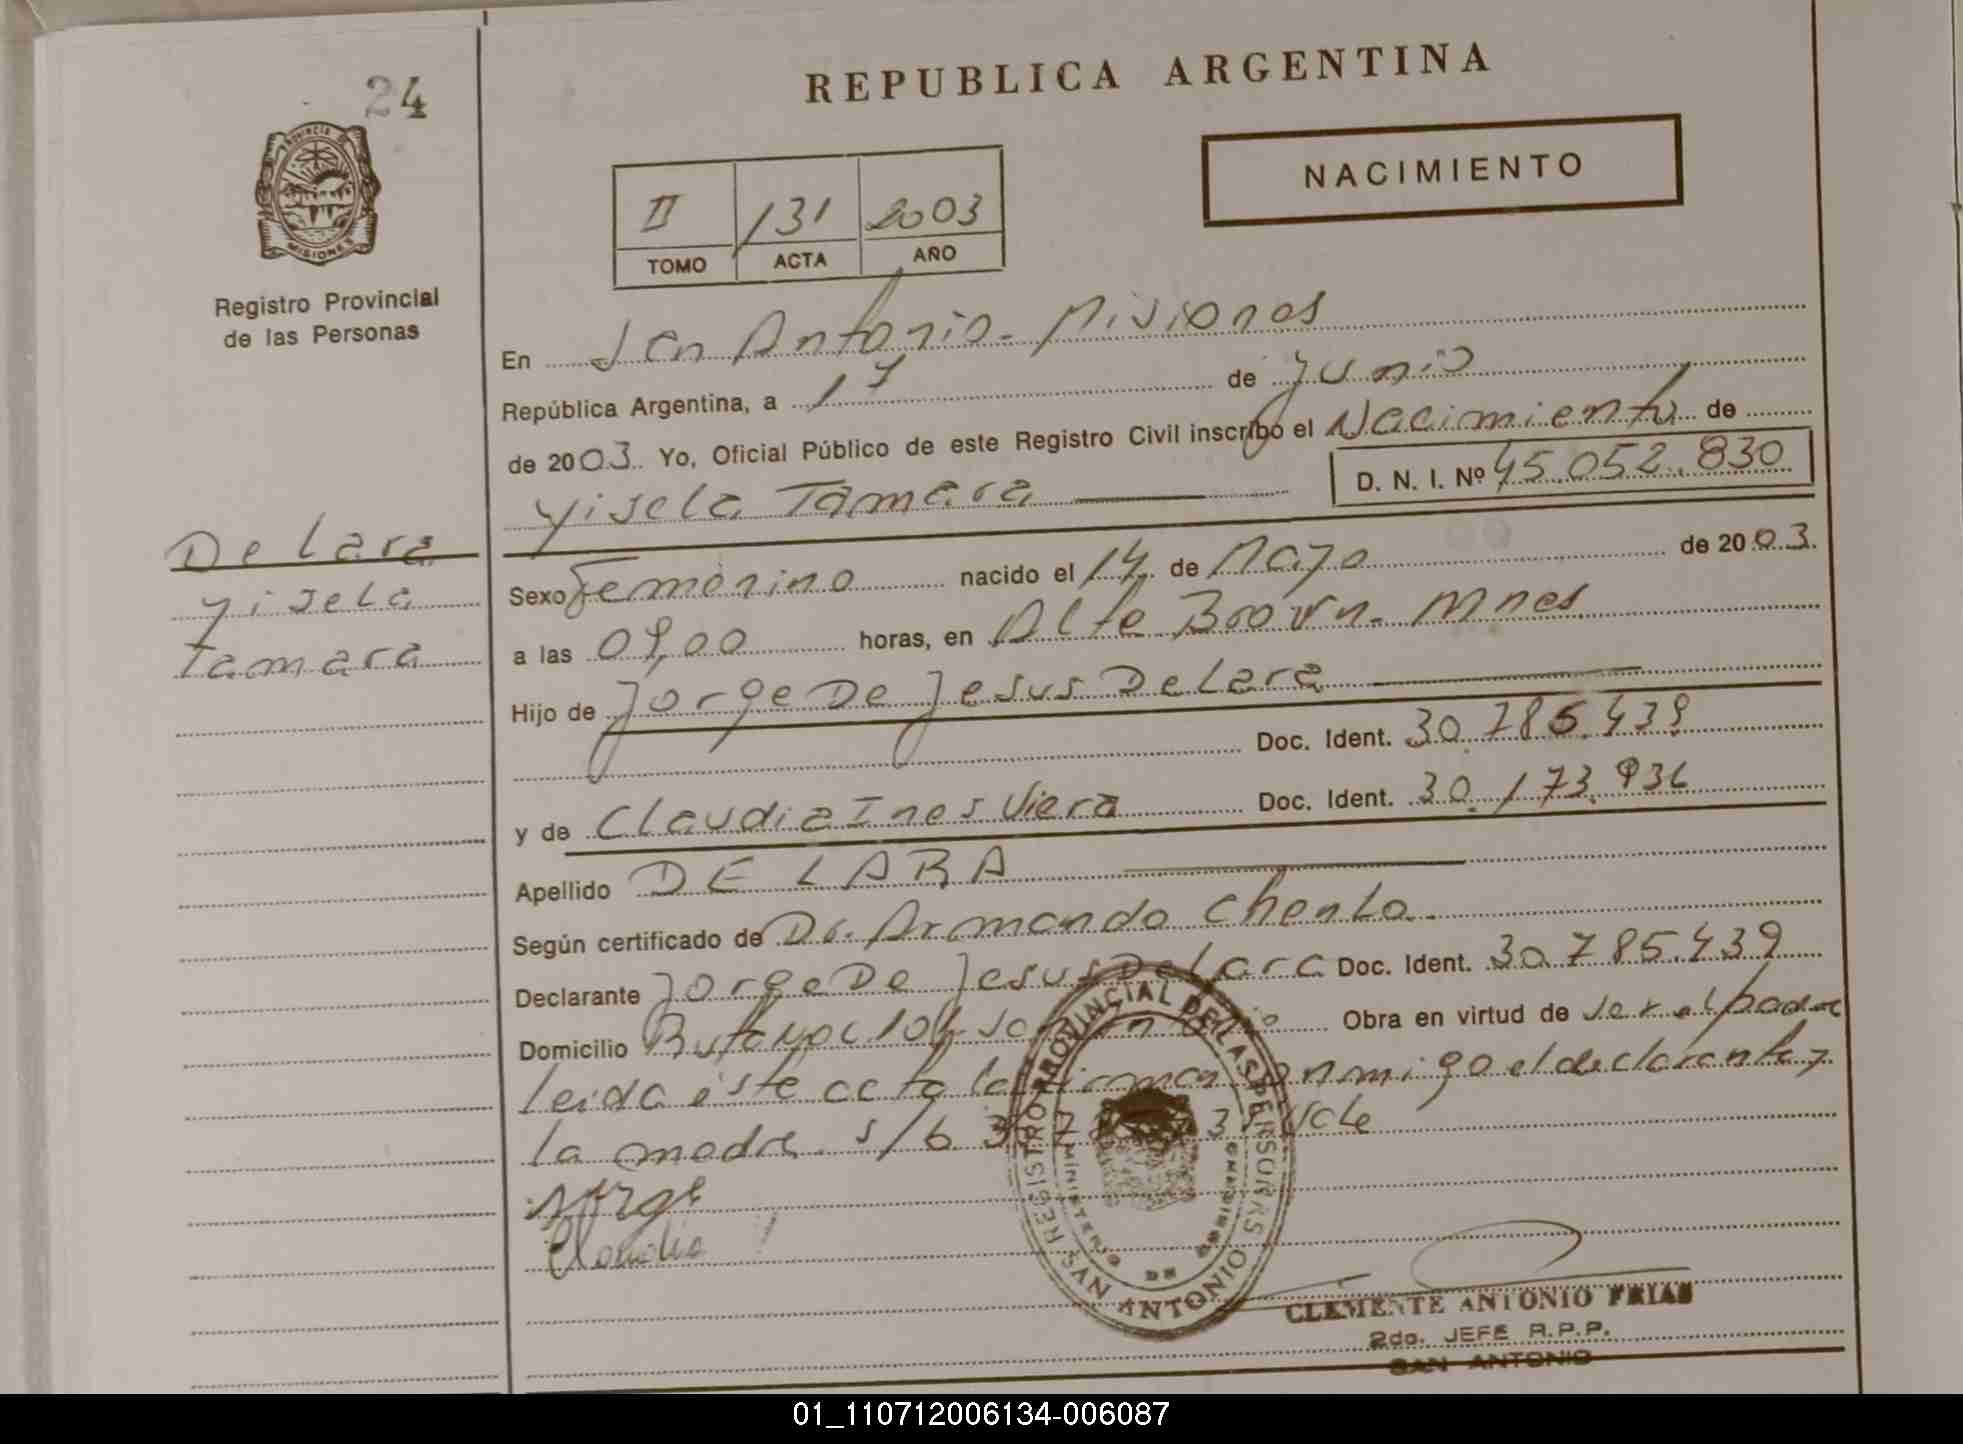 24
REPUBLICA ARGENTINA
NACIMIENTO
II 131 2003
TOMO ACTA AÑO
PROVINCIA DE
MISIONES
Registro Provincial
de las Personas
En San Antonio - Misiones
República Argentina, a 17 de Junio
de 2003. Yo, Oficial Público de este Registro Civil inscribo el Nacimiento de
D. N. I. Nº 45.052.830
Yisela Tamara
De Lara
Yisela
Tamara
Sexo Femenino nacido el 14 de Mayo de 2003.
a las 09,00 horas, en Alte Brown - Mnes.
Hijo de Jorge De Jesus De Lara
Doc. Ident. 30.785.439
y de Claudia Ines Viera Doc. Ident. 30.173.936
Apellido DE LARA
Según certificado de Dr. Armando
Declarante Jorge De Jesus De Lara Doc. Ident. 30.785.439
Domicilio Obra en virtud de ser el padre
leida este acta la firman conmigo el declarante y
la madre. S/b 3 Vale
Jorge
Claudia
REGISTRO PROVINCIAL DE LAS PERSONAS
MINISTERIO DE GOBIERNO
SAN ANTONIO
CLEMENTE ANTONIO FRIAS
2do. JEFE R.P.P.
SAN ANTONIO
01_110712006134-006087